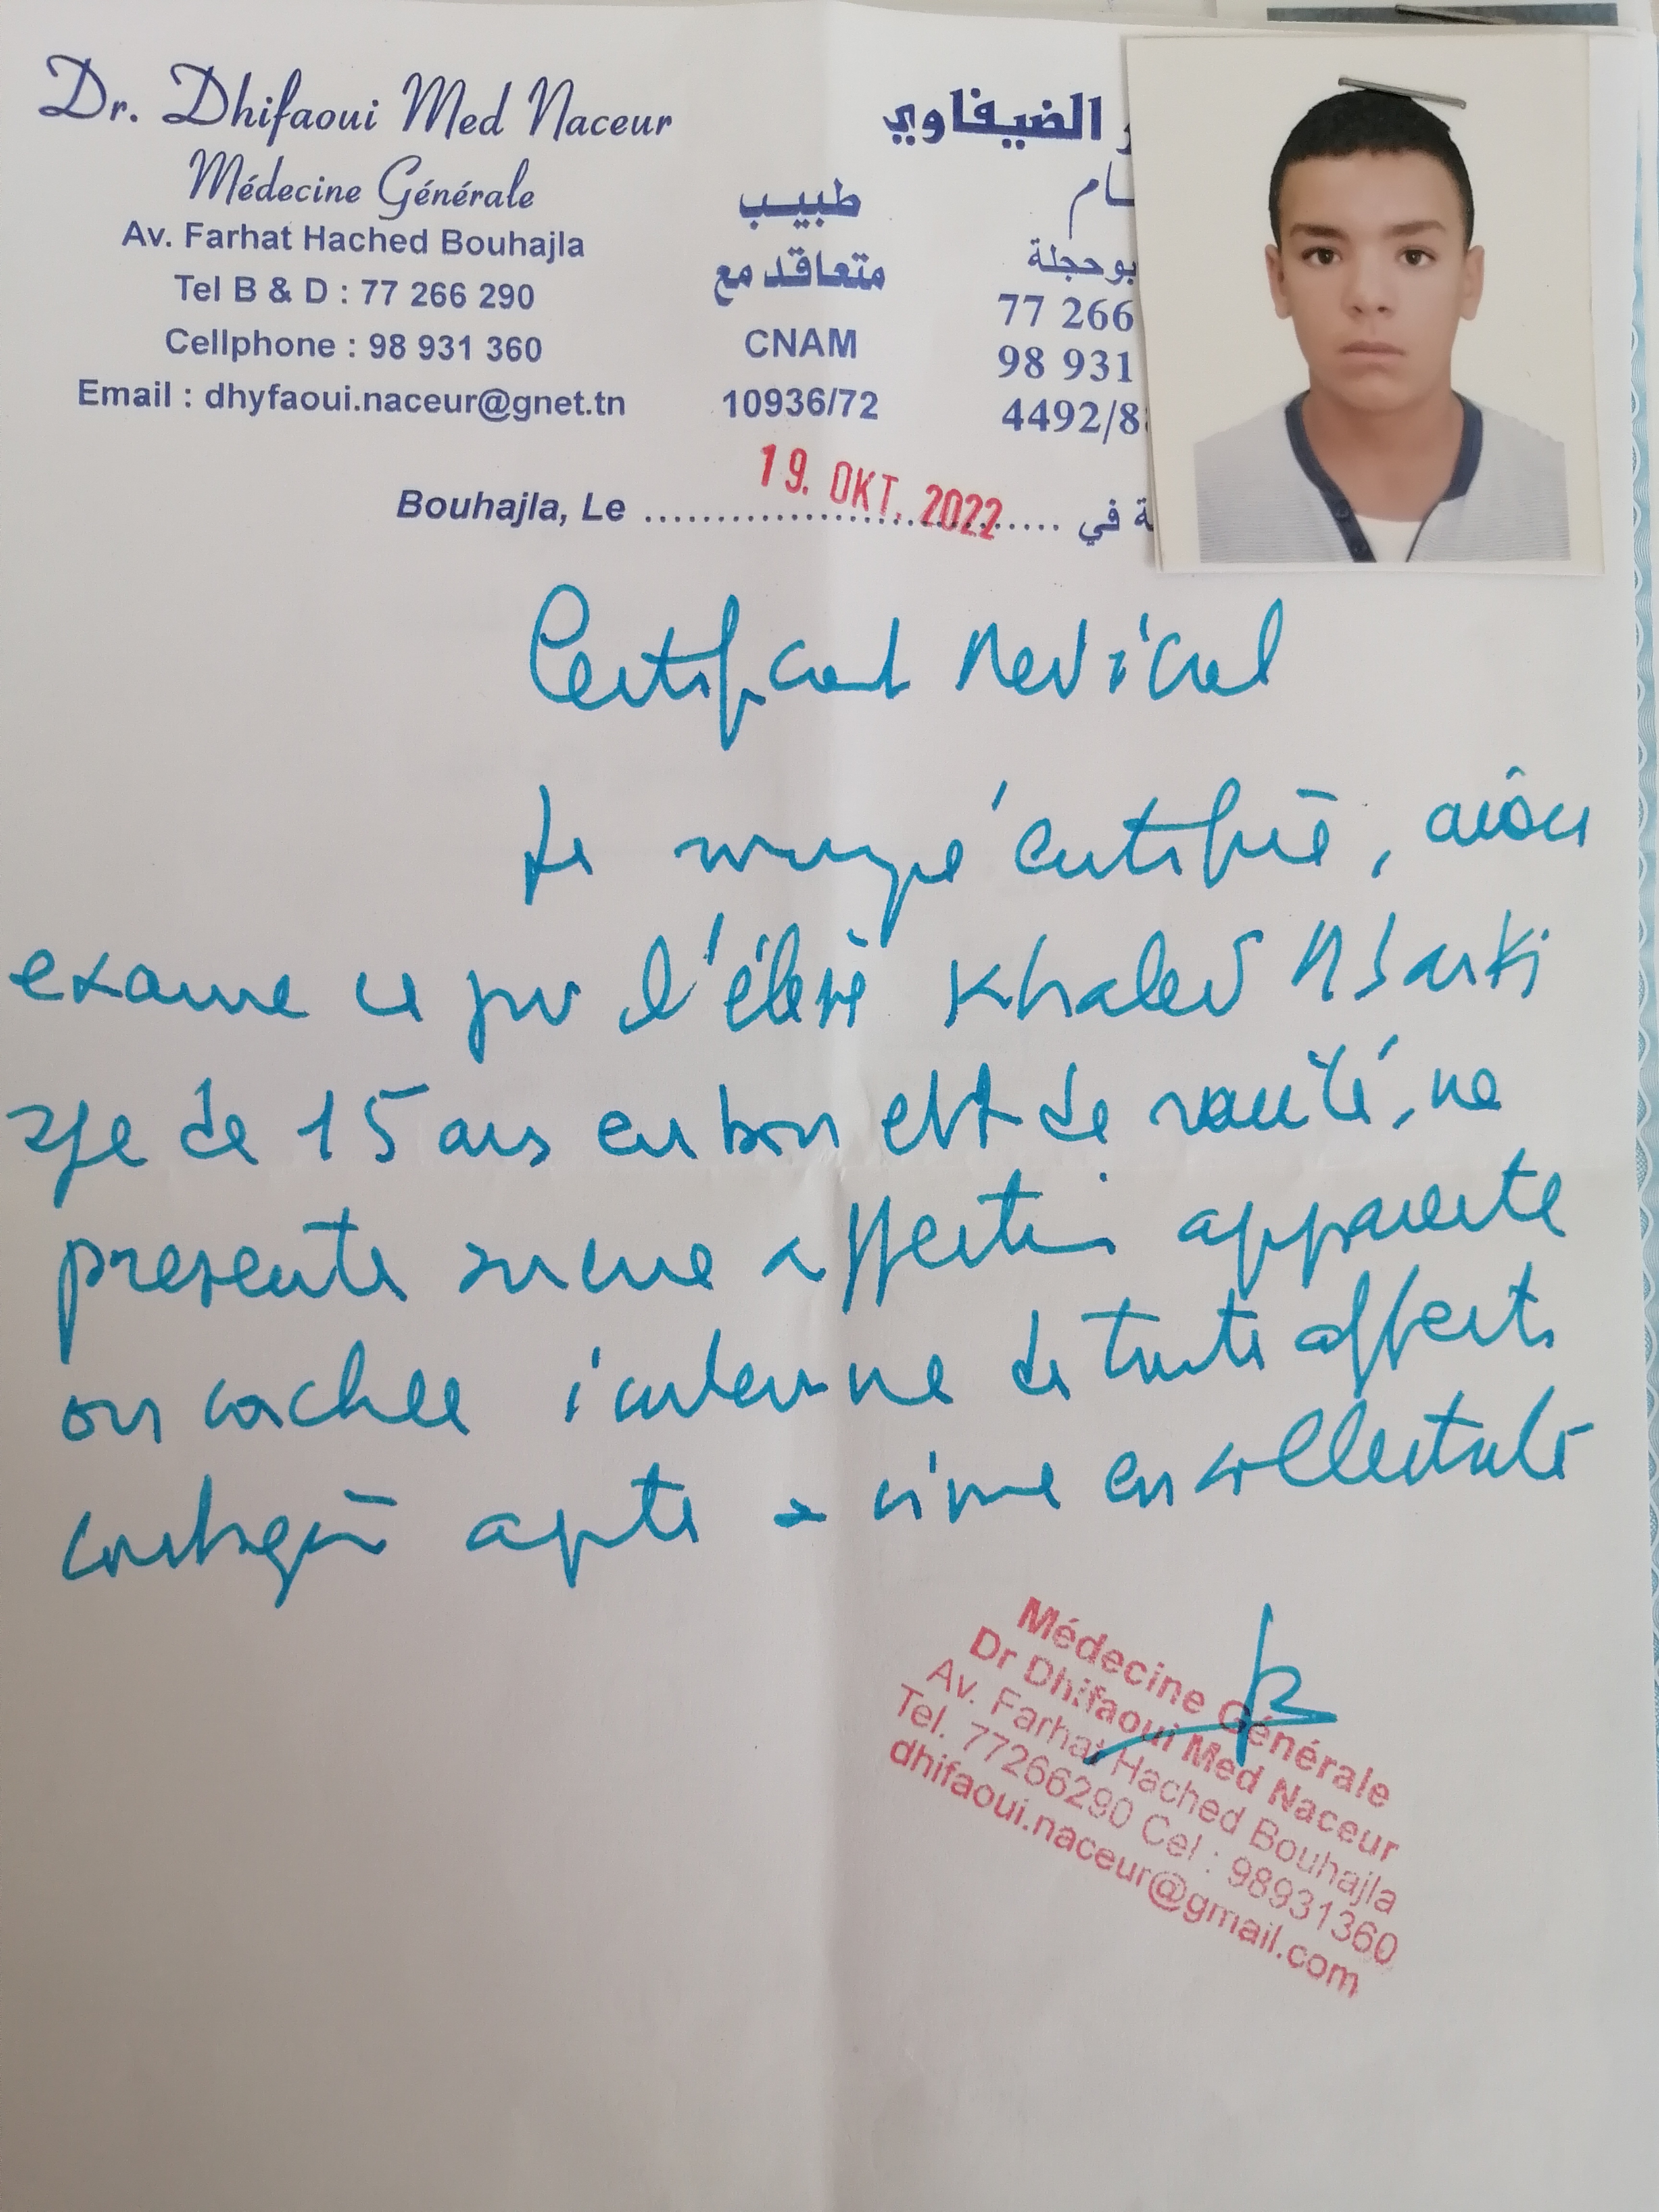 Dr. Dhifaoui Med Naceur
Médecine Générale
Av. Farhat Hached Bouhajla
Tel B & D : 77 266 290
Cellphone : 98 931 360
Email : dhyfaoui.naceur@gnet.tn
طبيب
متعاقد مع
CNAM
10936/72
الضيفاوي
بوحجلة
77 266
98 931
4492/8
Bouhajla, Le 19. OKT. 2022 في
Certificat Medical
Je certifie, avoir
examine ce jour l'élève Khaled Mbarki
age de 15 ans en bon etat de santé, ne
presente aucune affection apparente
ou cachee indemne de toute affection
contagieuse apte a vivre en collectivité
Médecine Générale
Dr Dhifaoui Med Naceur
Av. Farhat Hached Bouhajla
Tel. 77266290 Cel : 98931360
dhifaoui.naceur@gmail.com